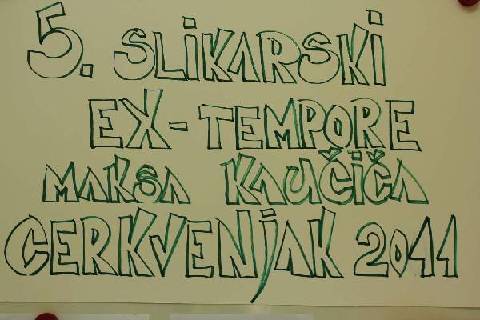 5. SLIKARSKI
EX-TEMPORE
MAKSA KAUČIČA
CERKVENJAK 2011